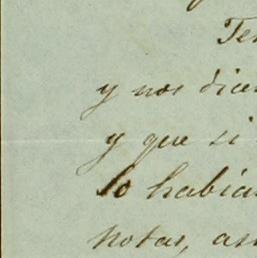 Ten
y nos dicen
y que si
lo habia
notas, an